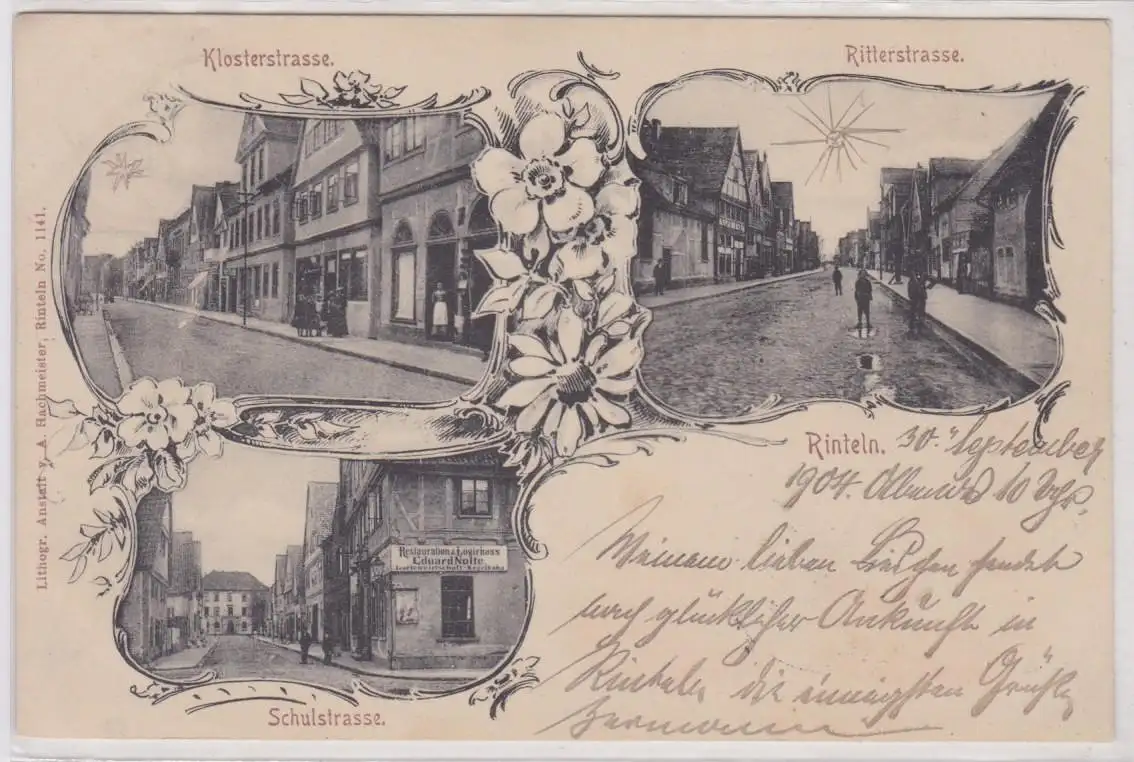 Klosterstrasse.
Ritterstrasse.
Lithogr. Anstalt v. A. Hachmeister, Rinteln No. 1141.
Restauration & Logirhaus
Eduard Nolte
Gartenwirtschaft-Kegelbahn
Schulstrasse.
Rinteln. 30. September
1904. Abends 10 Uhr.
Meinem lieben Lieschen sendet
nach glücklicher Ankunft in
Rinteln die innigsten Grüße
Hermann